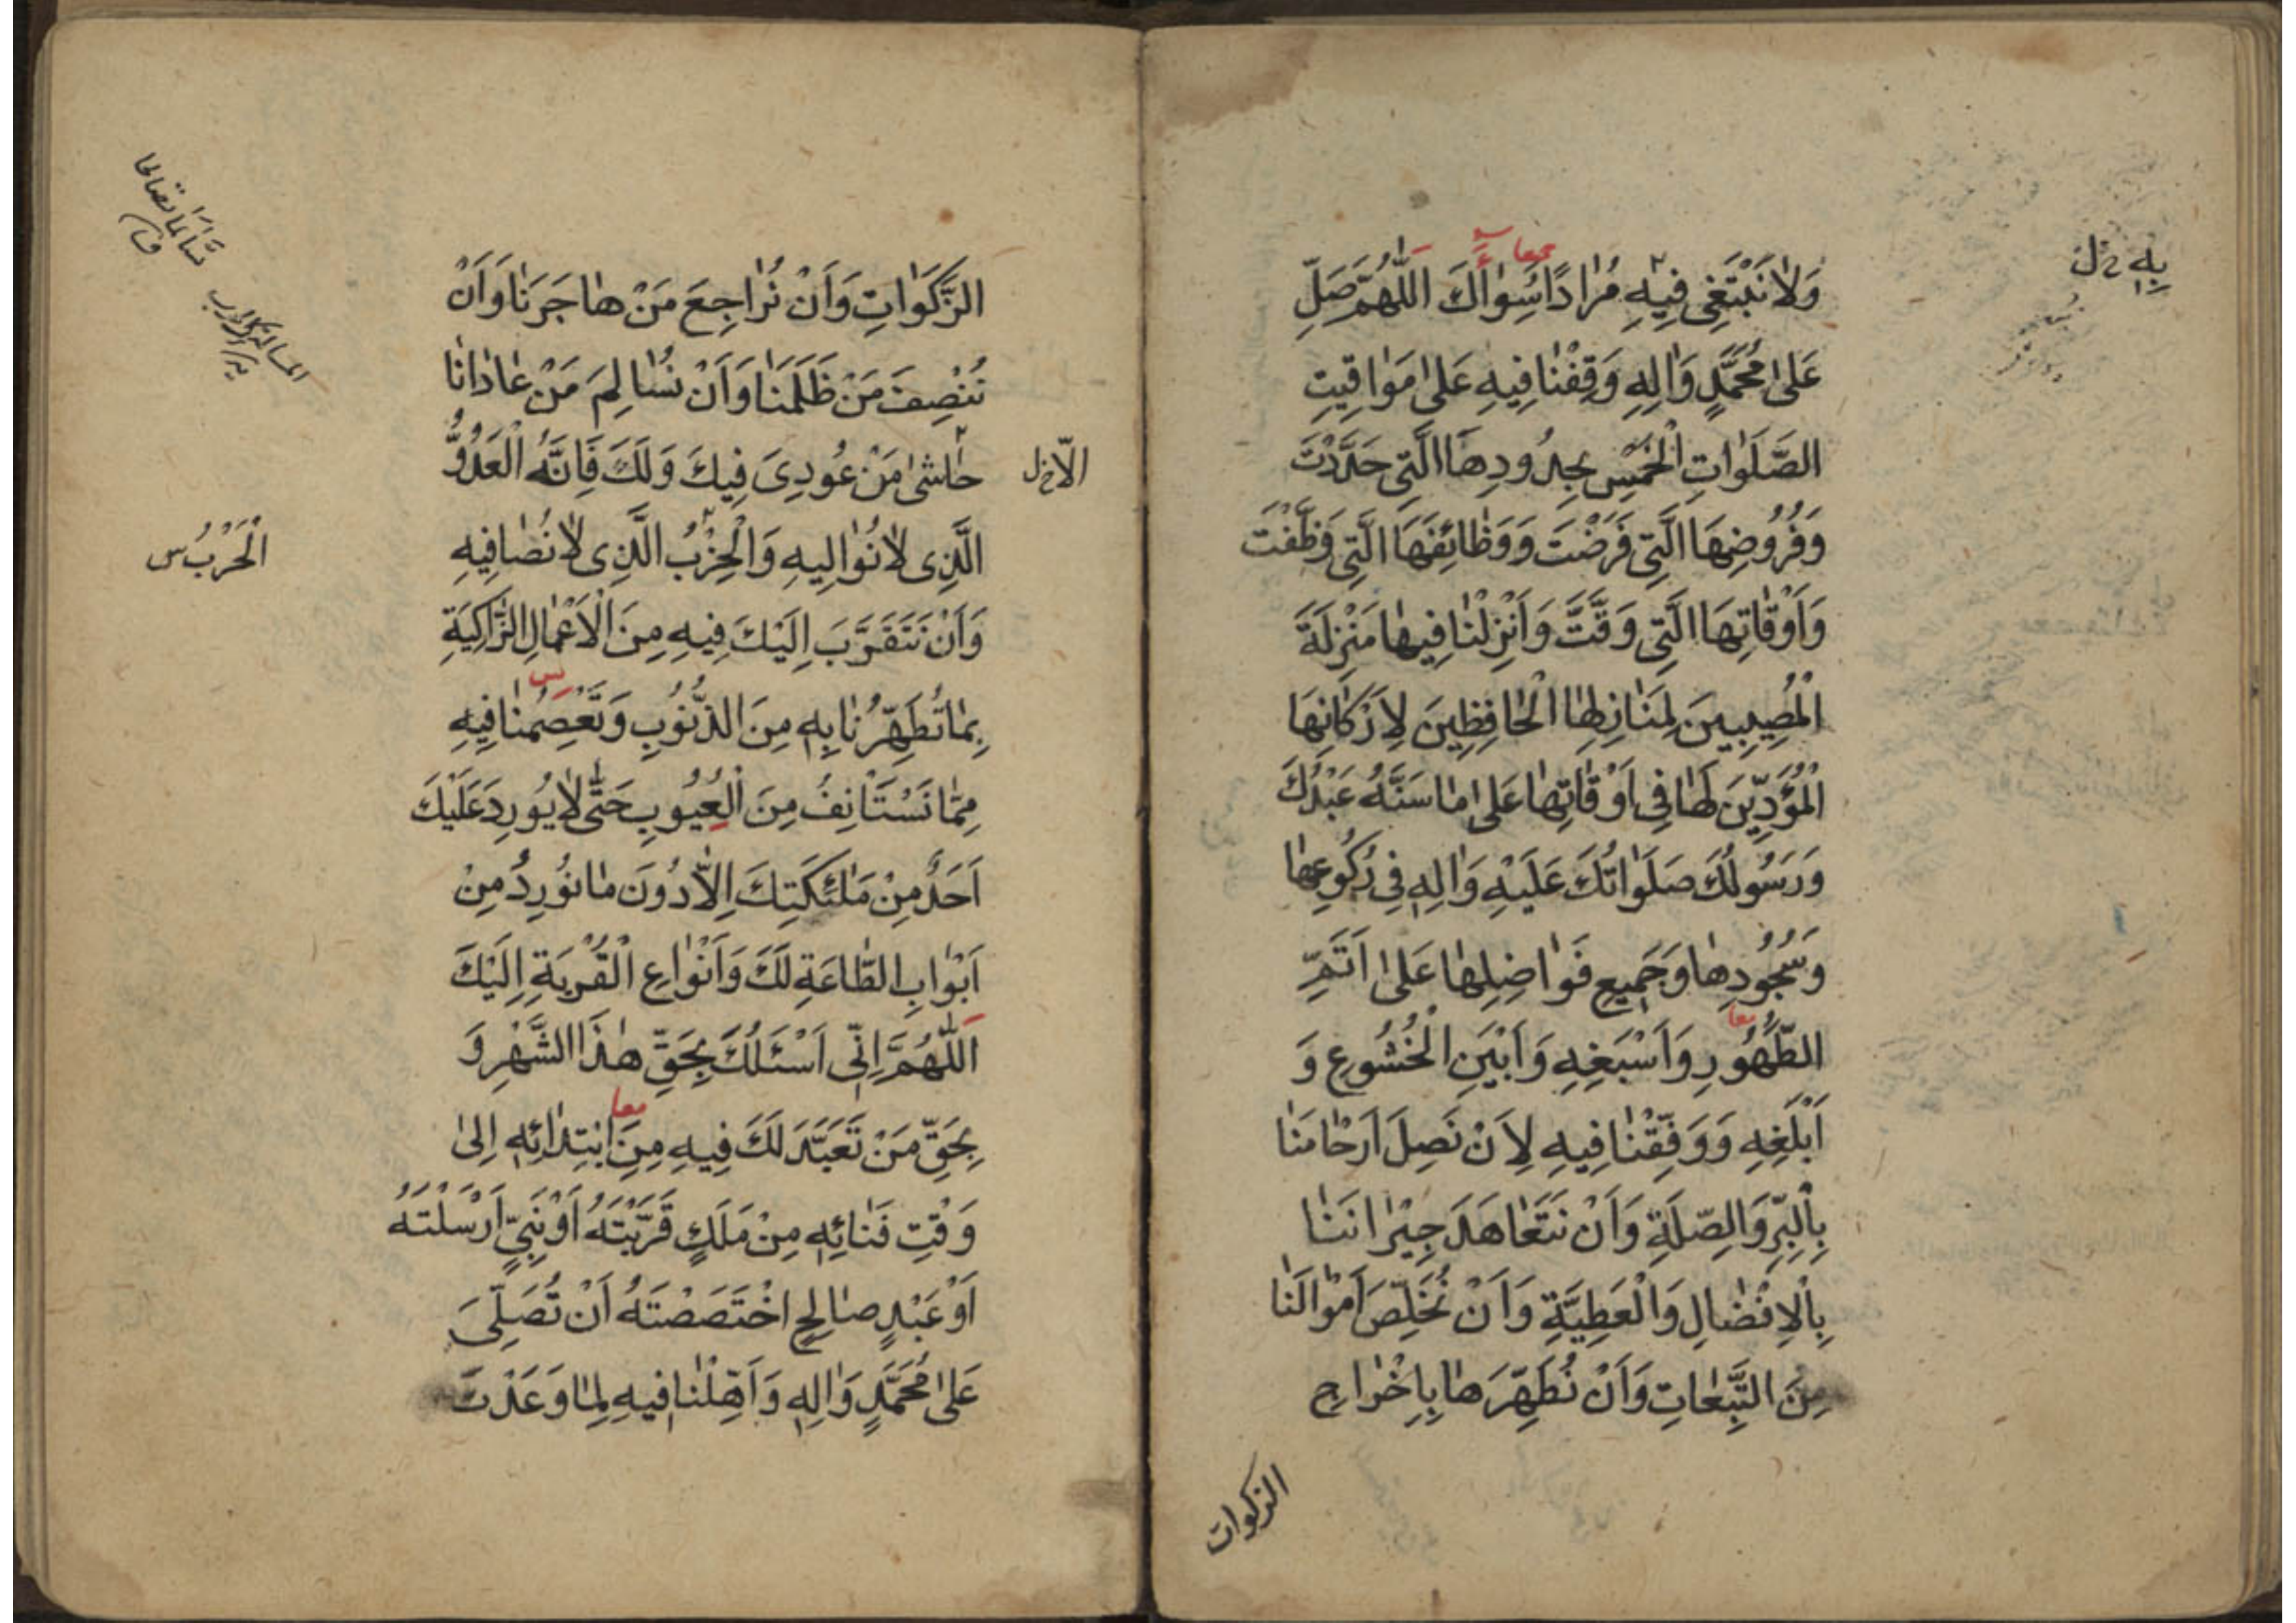 وَلٰا نَبْتَغِىَ فِيهِ مُرٰادًا سِوٰاكَ اَللّٰهُمَّ صَلِّ
عَلىٰ مُحَمَّدٍ وَاٰلِهِ وَقِفْنٰا فِيهِ عَلىٰ مَوٰاقِيتِ
الصَّلَوٰاتِ الْخَمْسِ بِحُدُودِهَا الَّتِى حَدَّدْتَ
وَفُرُوضِهَا الَّتِى فَرَضْتَ وَوَظٰائِفِهَا الَّتِى وَظَّفْتَ
وَاَوْقٰاتِهَا الَّتِى وَقَّتَّ وَاَنْزِلْنٰا فِيهٰا مَنْزِلَةَ
الْمُصِيبِينَ لِمَنٰازِلِهَا الْحٰافِظِينَ لِاَرْكٰانِهَا
الْمُؤَدِّينَ لَهٰا فِى اَوْقٰاتِهٰا عَلىٰ مٰا سَنَّهُ عَبْدُكَ
وَرَسُولُكَ صَلَوٰاتُكَ عَلَيْهِ وَاٰلِهِ فِى رُكُوعِهٰا
وَسُجُودِهٰا وَجَمِيعِ فَوٰاضِلِهٰا عَلىٰ اَتَمِّ
الطَّهُورِ وَاَسْبَغِهِ وَاَبْيَنِ الْخُشُوعِ وَ
اَبْلَغِهِ وَوَفِّقْنٰا فِيهِ لِاَنْ نَصِلَ اَرْحٰامَنٰا
بِالْبِرِّ وَالصِّلَةِ وَاَنْ نَتَعٰاهَدَ جِيْرٰانَنٰا
بِالْاِفْضٰالِ وَالْعَطِيَّةِ وَاَنْ نُخَلِّصَ اَمْوٰالَنٰا
مِنَ التَّبِعٰاتِ وَاَنْ نُطَهِّرَهٰا بِاِخْرٰاجِ
الزكوات
بِهِ خ ل
معا
معا
الزَّكَوٰاتِ وَاَنْ نُرٰاجِعَ مَنْ هٰاجَرَنٰا وَاَنْ
نُنْصِفَ مَنْ ظَلَمَنٰا وَاَنْ نُسٰالِمَ مَنْ عٰادٰانٰا
حٰاشىٰ مَنْ عُودِىَ فِيكَ وَلَكَ فَاِنَّهُ الْعَدُوُّ
الَّذِى لٰا نُوٰالِيهِ وَالْحِزْبُ الَّذِى لٰا نُصٰافِيهِ
وَاَنْ نَتَقَرَّبَ اِلَيْكَ فِيهِ مِنَ الْاَعْمٰالِ الزّٰاكِيَةِ
بِمٰا تُطَهِّرُنٰا بِهِ مِنَ الذُّنُوبِ وَتَعْصِمُنٰا فِيهِ
مِمّٰا نَسْتَانِفُ مِنَ الْعُيُوبِ حَتّٰى لٰا يُورِدَ عَلَيْكَ
اَحَدٌ مِنْ مَلٰئِكَتِكَ اِلّٰا دُونَ مٰا نُورِدُ مِنْ
اَبْوٰابِ الطّٰاعَةِ لَكَ وَاَنْوٰاعِ الْقُرْبَةِ اِلَيْكَ
اَللّٰهُمَّ اِنِّى اَسْئَلُكَ بِحَقِّ هٰذَا الشَّهْرِ وَ
بِحَقِّ مَنْ تَعَبَّدَ لَكَ فِيهِ مِنِ ابْتِدٰائِهِ اِلىٰ
وَقْتِ فَنٰائِهِ مِنْ مَلَكٍ قَرَّبْتَهُ اَوْ نَبِىٍّ اَرْسَلْتَهُ
اَوْ عَبْدٍ صٰالِحٍ اخْتَصَصْتَهُ اَنْ تُصَلِّىَ
عَلىٰ مُحَمَّدٍ وَاٰلِهِ وَاَهِّلْنٰا فِيهِ لِمٰا وَعَدْتَ
الّا خ ل
الْحَرْبُ س
س
معا